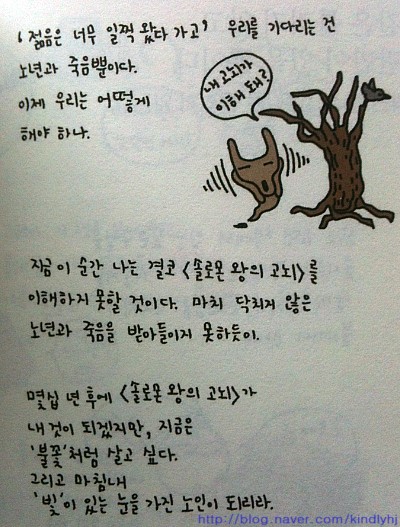 '젊음은 너무 일찍 왔다 가고' 우리를 기다리는 건
노년과 죽음뿐이다.
이제 우리는 어떻게
해야 하나.
내 고뇌가
이해 돼?
지금 이 순간 나는 결코 <솔로몬 왕의 고뇌>를
이해하지 못할 것이다. 마치 닥치지 않은
노년과 죽음을 받아들이지 못하듯이.
몇십 년 후에 <솔로몬 왕의 고뇌>가
내 것이 되겠지만, 지금은
'불꽃'처럼 살고 싶다.
그리고 마침내
'빛'이 있는 눈을 가진 노인이 되리라.
http://blog.naver.com/kindlyhj